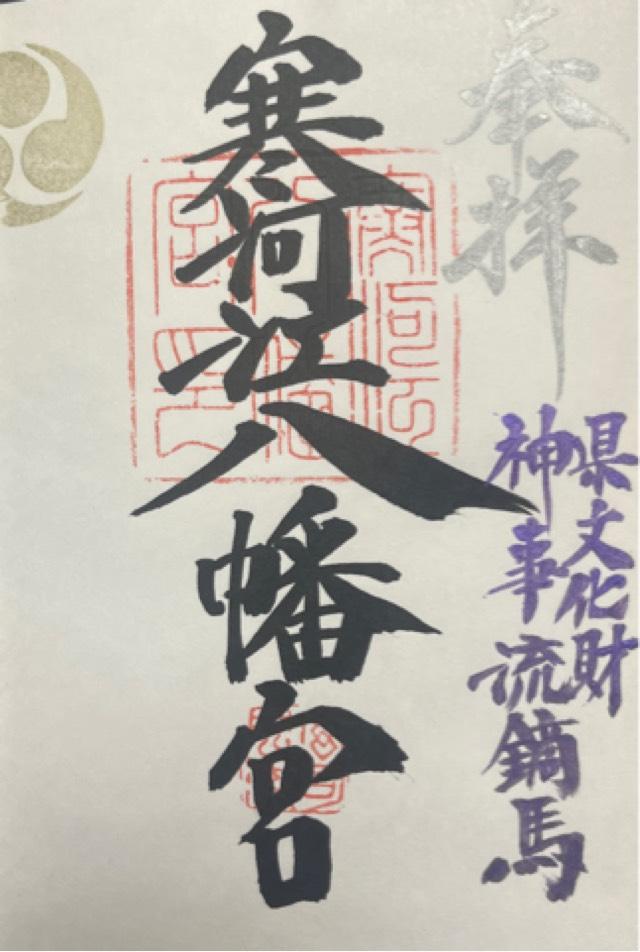 奉拝
県文化財
神事流鏑馬
寒河江八幡宮